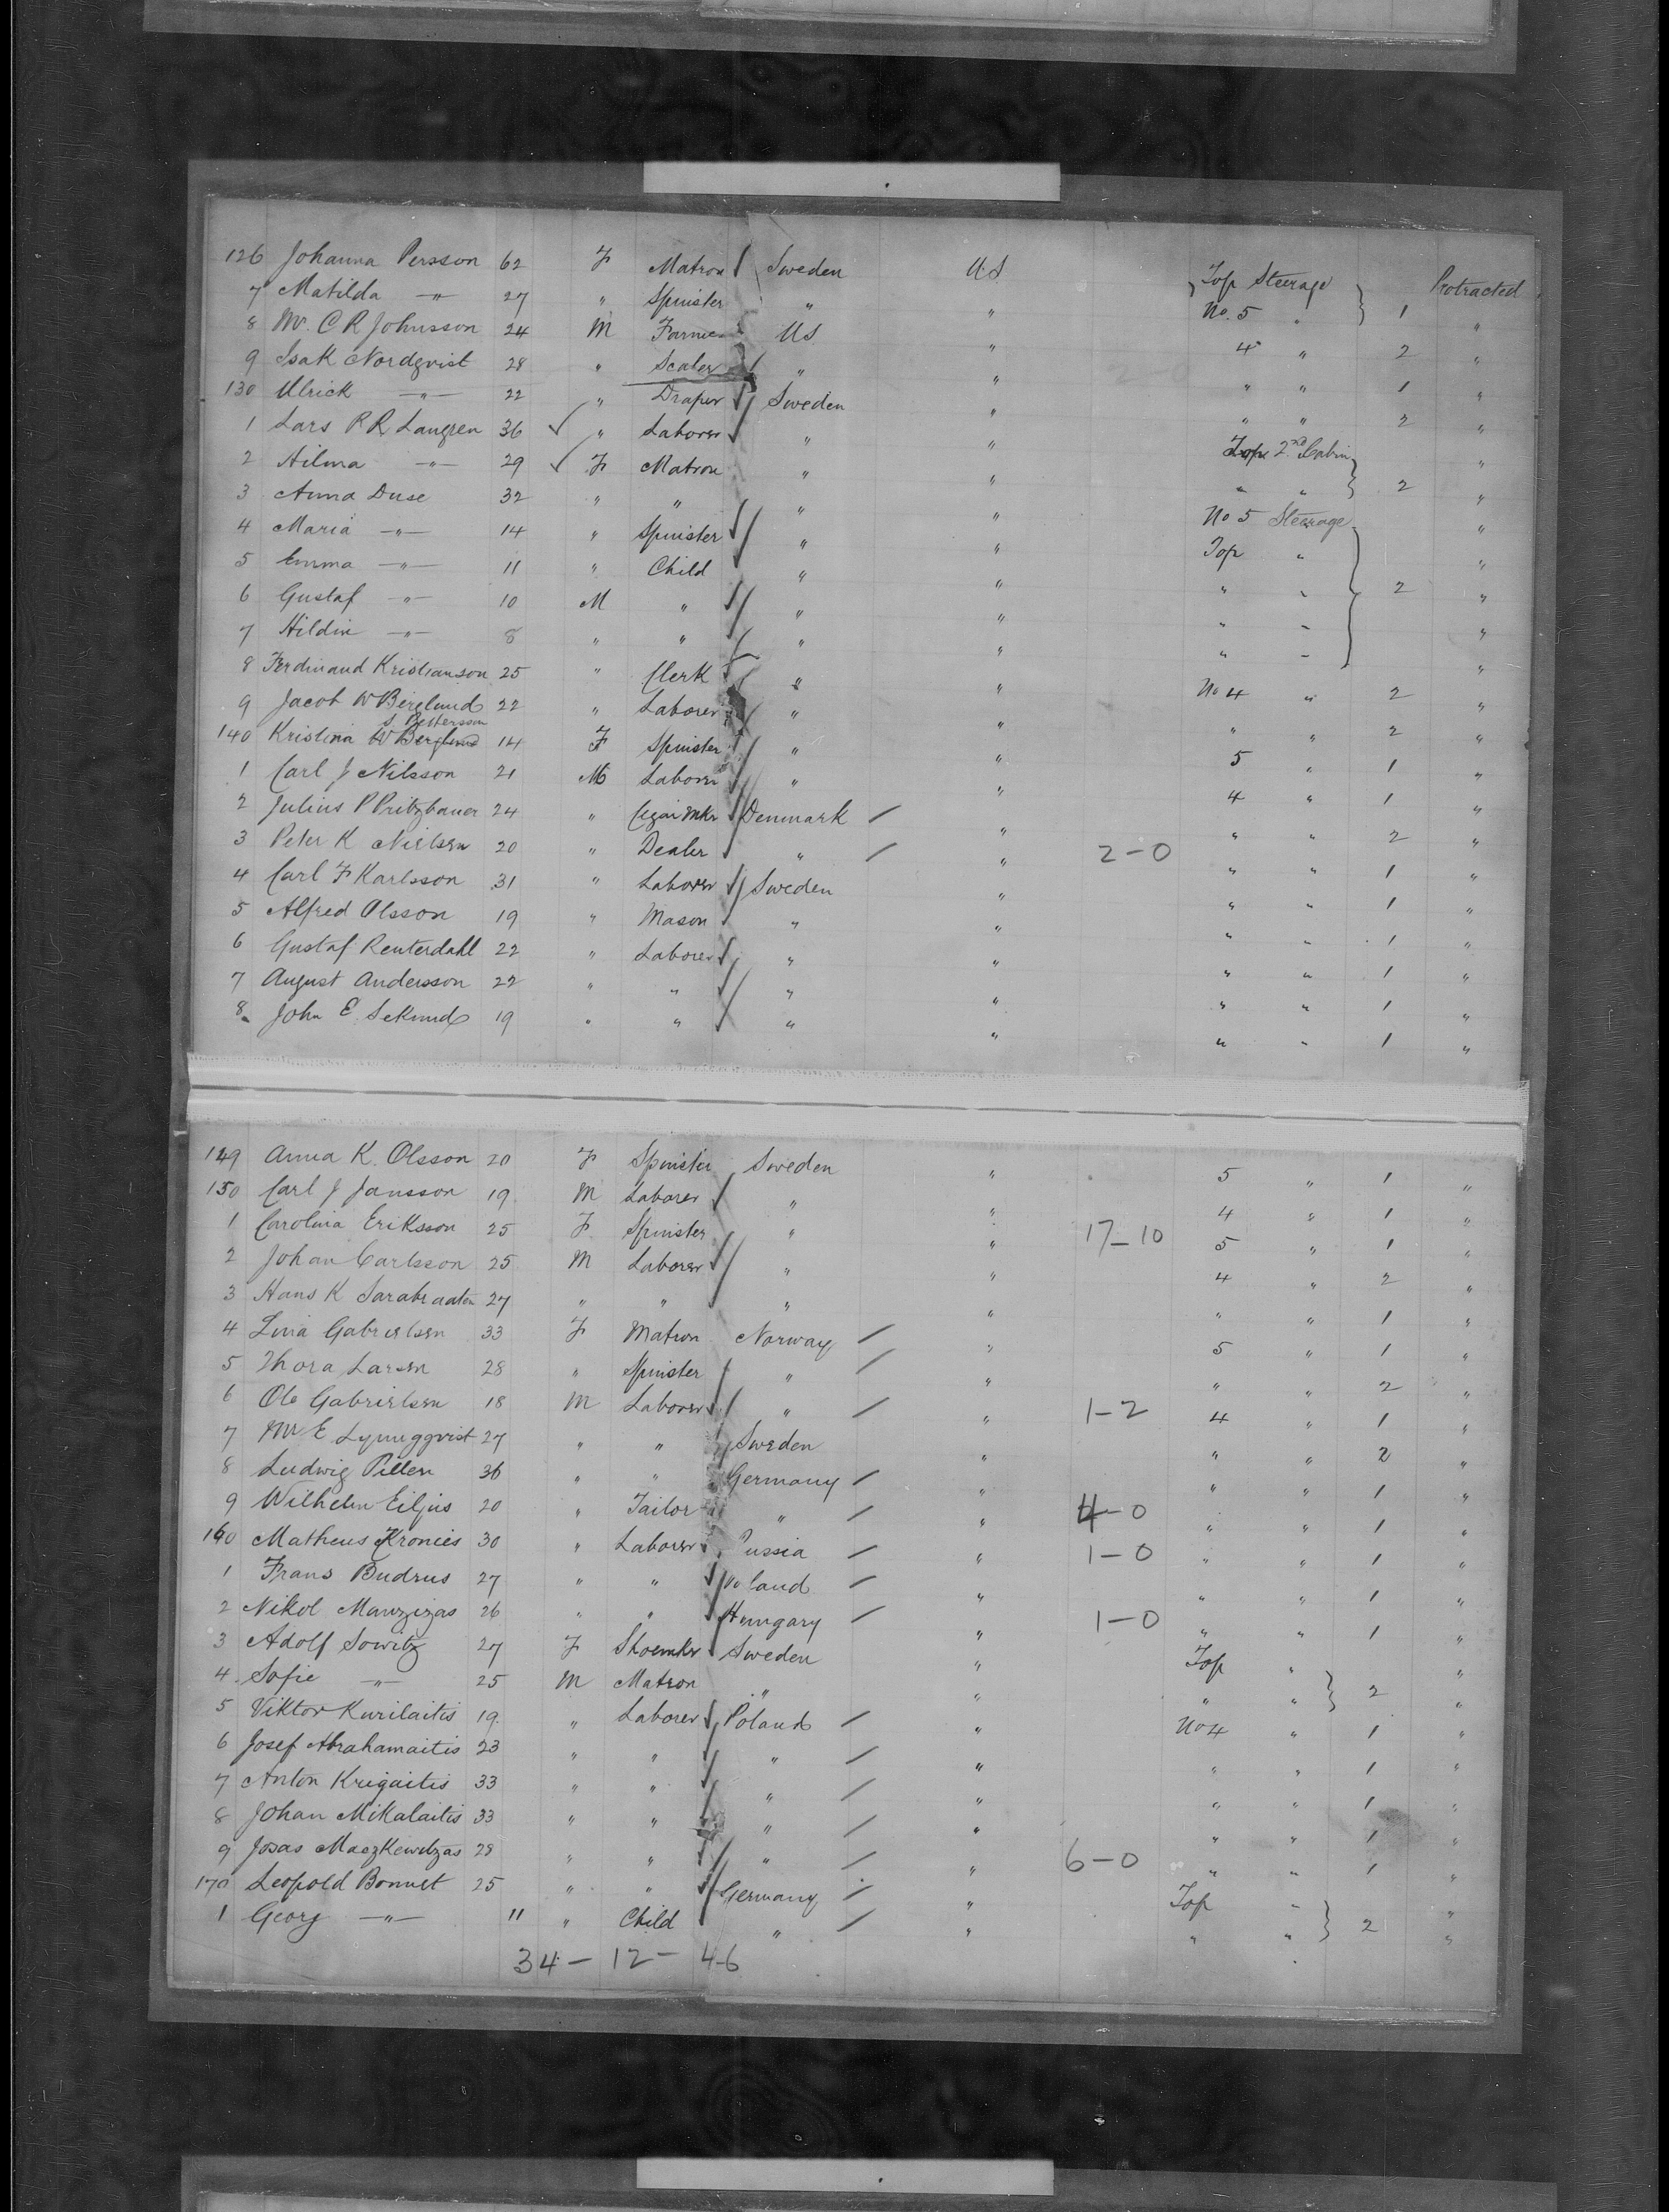 126 Johanna Persson 62 F Matron Sweden U.S Top Steerage 1 Protracted
7 Matilda —"— 27 " Spinster " " No. 5 " "
8 W. C R Johnsson 24 M Farmer US " 4 " 2 "
9 Isak Nordqvist 28 " Scaler " " " " 1 "
130 Ulrick —"— 22 " Draper Sweden " " " 2 "
1 Lars P R Laugren 36 " Laborer " " 2nd Cabin "
2 Hilma —"— 29 F Matron " " " " 2 "
3 Anna Duse 32 " " " " No 5 Steerage "
4 Maria —"— 14 " Spinster " " Top " "
5 Emma —"— 11 " Child " " " " 2 "
6 Gustaf —"— 10 M " " " " " "
7 Hildin —"— 8 " " " " " " "
8 Ferdinand Kristianson 25 " Clerk " " No 4 " 2 "
9 Jacob W Berglund 22 " Laborer " " " " 2 "
S Pettersson
140 Kristina W Berglund 14 F Spinster " " 5 " 1 "
1 Carl J Nilsson 21 M Laborer " " 4 " 1 "
2 Julius P Pritzbauer 24 " Cigar Mkr Denmark / " " " 2 "
3 Peter K Nielsen 20 " Dealer " / " 2-0 " " 1 "
4 Carl F Karlsson 31 " Laborer Sweden " " " 1 "
5 Alfred Olsson 19 " Mason " " " " 1 "
6 Gustaf Reuterdahl 22 " Laborer " " " " 1 "
7 August Andersson 22 " " " " " " 1 "
8 John E. Seklund 19 " " " " " " 1 "
149 Anna K. Olsson 20 F Spinster Sweden " 5 " 1 "
150 Carl J Jansson 19 M Laborer " " 4 " 1 "
1 Carolina Eriksson 25 F Spinster " " 17-10 5 " 1 "
2 Johan Carlsson 25 M Laborer " " 4 " 2 "
3 Hans K Sarabraaten 27 " " " " " " 1 "
4 Lina Gabrielsen 33 F Matron Norway / " 5 " 1 "
5 Thora Larsen 28 " Spinster " / " " " 2 "
6 Ole Gabrielsen 18 M Laborer " / " 1-2 4 " 1 "
7 E Ljunggqvist 27 " " Sweden " " " 2 "
8 Ludwig Pillen 36 " " Germany / " " " 1 "
9 Wilhelm Eiljus 20 " Tailor " / " 4-0 " " 1 "
160 Matheus Kronies 30 " Laborer Russia / " 1-0 " " 1 "
1 Frans Budrus 27 " " Poland / " " " 1 "
2 Nikol Manzizas 26 " " Hungary / " 1-0 " " 1 "
3 Adolf Sowitz 27 F Shoemkr Sweden " Top " "
4 Sofie —"— 25 M Matron " " " " 2 "
5 Viktor Kurilaitis 19 " Laborer Poland / " No 4 " 1 "
6 Josef Abrahamaitis 23 " " " / " " " 1 "
7 Anton Krigaitis 33 " " " / " " " 1 "
8 Johan Mikalaitis 33 " " " / " " " 1 "
9 Josas Maczkewitzas 28 " " " / " 6-0 " " 1 "
170 Leopold Bonnet 25 " " Germany / " Top " "
1 Georg —"— 11 " Child " / " " " 2 "
34 - 12 - 46